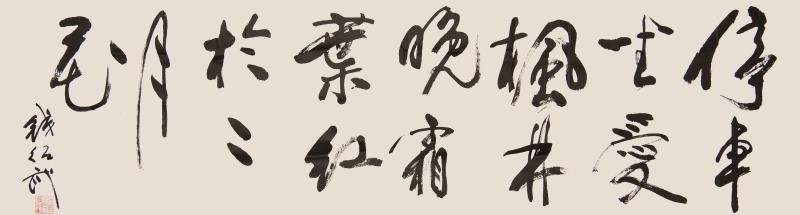 停車
坐愛
楓林
晚霜
葉紅
於二
月
花
錢紹武